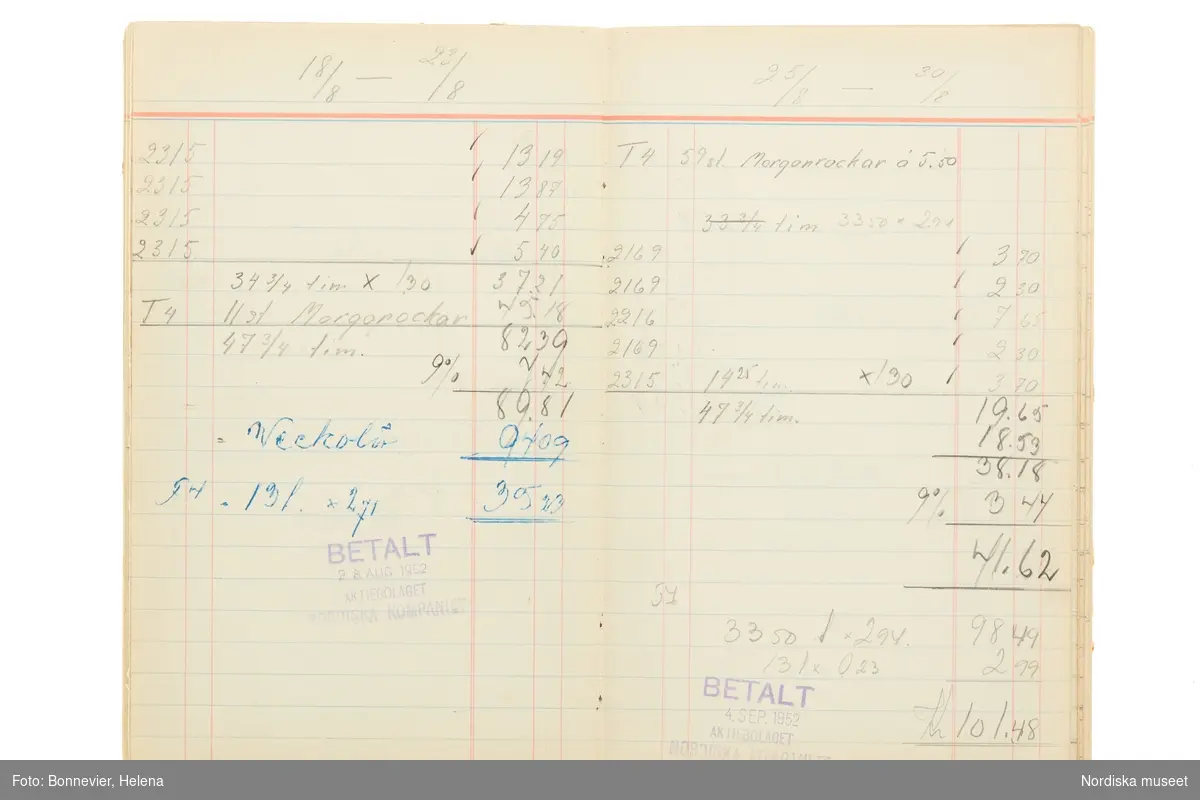 18/8 — 23/8
2315 13 19
2315 13 87
2315 4 75
2315 5 40
34 3/4 tim x 1.30 37.21
T4 11 st Morgonrockar 45.18
47 3/4 tim. 82 39
9% 7 42
89.81
= Veckolön
T4 = 13 t. x 2 71 35 23
BETALT
28 AUG 1952
AKTIEBOLAGET
NORDISKA KOMPANIET
25/8 — 30/8
T4 59 st. Morgonrockar á 5.50
33 3/4 tim 33 50 x 2 94
2169 3 70
2169 2 30
2216 7 65
2169 2 30
2315 14 25 tim. x 1 30 3 70
47 3/4 tim. 19.65
18.53
38.18
9% 3 44
41.62
33 50 t x 2 94. 98 49
13 t x 0 23 2 99
Kr 101.48
BETALT
4. SEP. 1952
AKTIEBOLAGET
NORDISKA KOMPANIET
Foto: Bonnevier, Helena
Nordiska museet